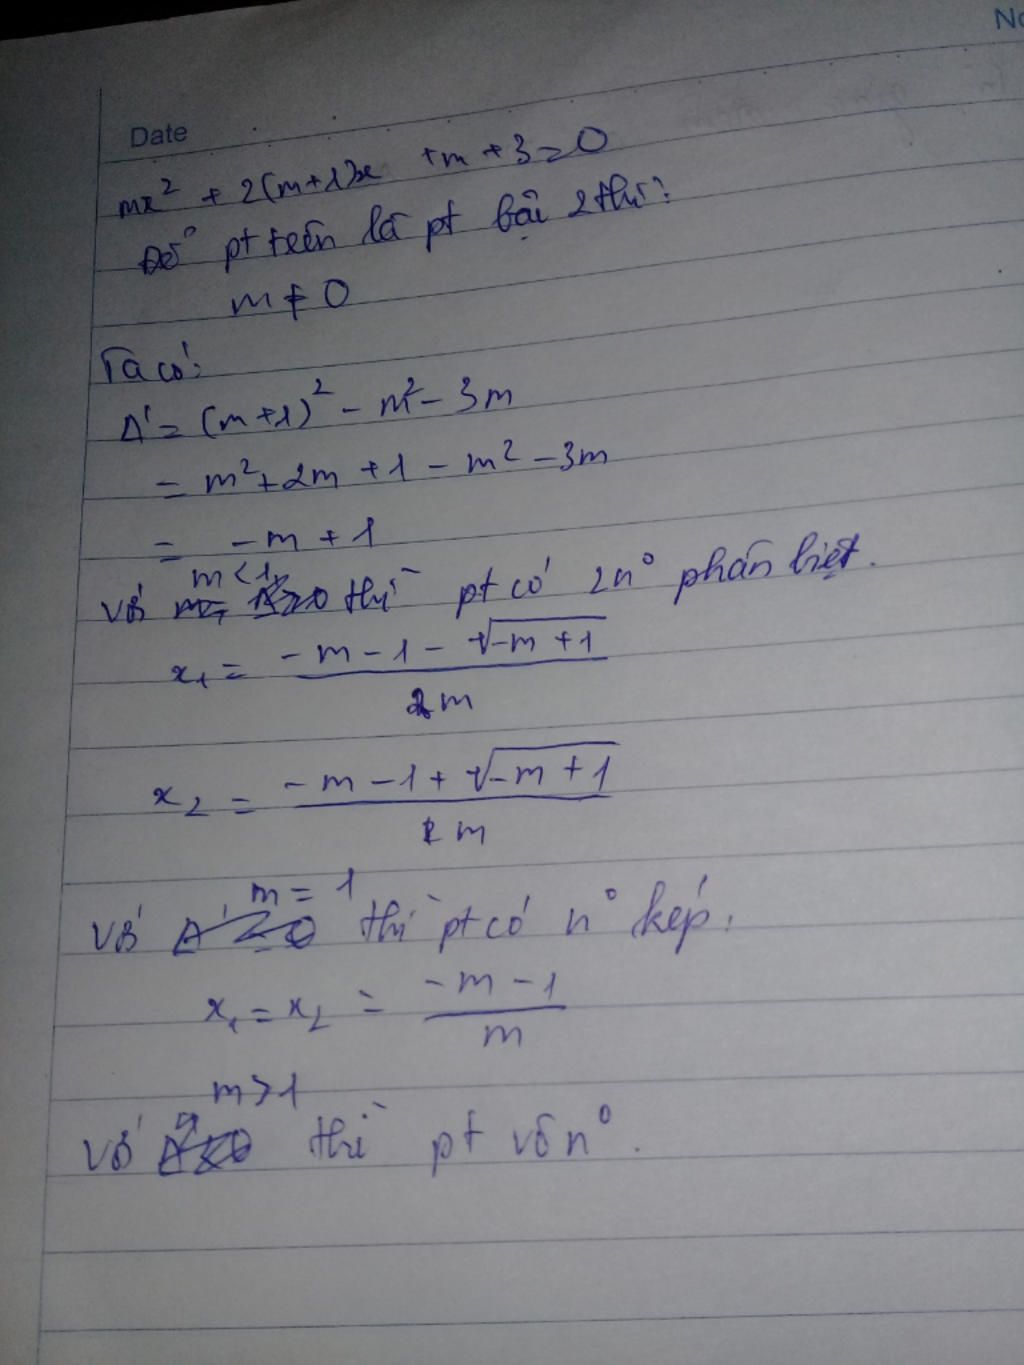 No
Date
mx² + 2(m+1)x + m + 3 = 0
Để pt trên là pt bậc 2 thì:
m ≠ 0
Ta có:
Δ' = (m+1)² - m² - 3m
= m² + 2m + 1 - m² - 3m
= -m + 1
m < 1
Với thì pt có 2 n° phân biệt.
x₁ = (-m - 1 - √(-m + 1)) / m
x₂ = (-m - 1 + √(-m + 1)) / m
m = 1
Với Δ' = 0 thì pt có n° kép:
x₁ = x₂ = (-m - 1) / m
m > 1
Với thì pt vô n°.